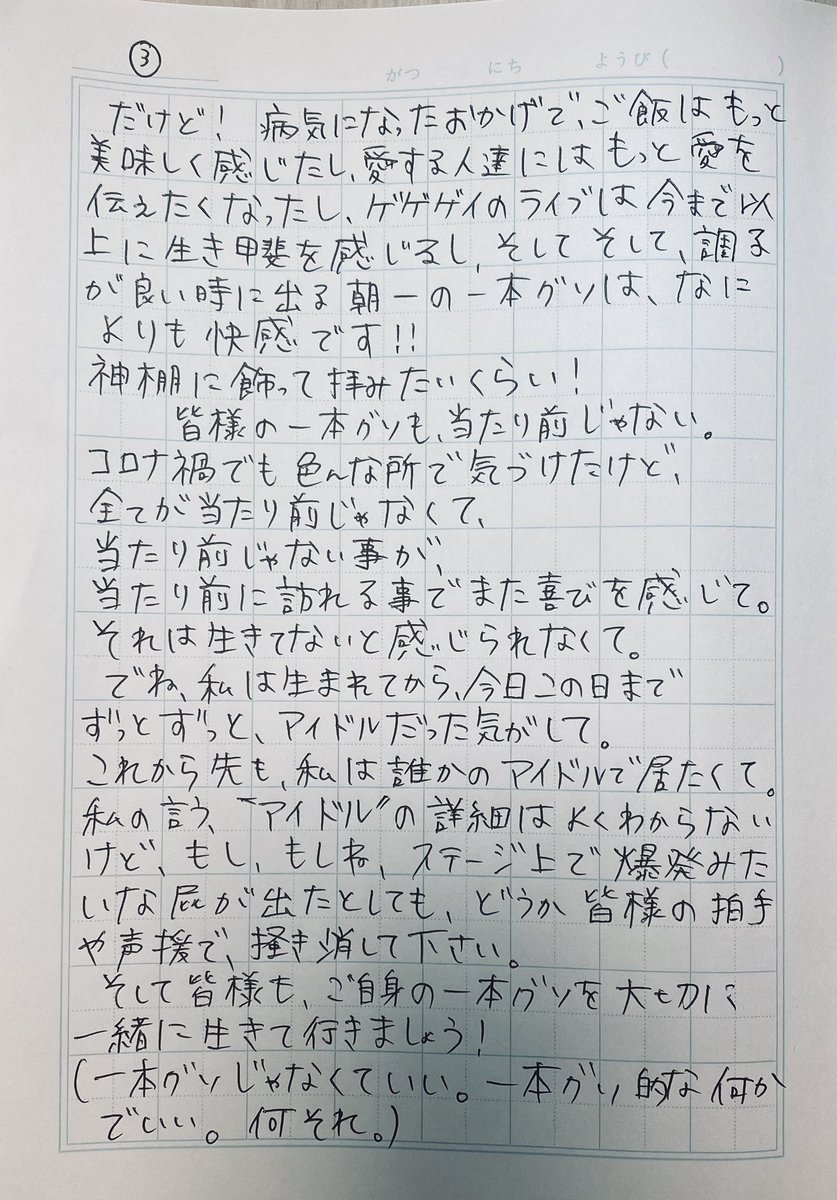 ③
がつ にち ようび( )
だけど! 病気になったおかげで、ご飯はもっと
美味しく感じたし、愛する人達にはもっと愛を
伝えたくなったし、ゲゲゲイのライブは今まで以
上に生き甲斐を感じるし、そして そして、調子
が良い時に出る朝一の一本グソは、なに
よりも快感です!!
神棚に飾って拝みたいくらい!
皆様の一本グソも、当たり前じゃない。
コロナ禍でも色んな所で気づけたけど、
全てが当たり前じゃなくて、
当たり前じゃない事が、
当たり前に訪れる事でまた喜びを感じて。
それは生きてないと感じられなくて。
でね、私は生まれてから、今日この日まで
ずっとずっと、アイドルだった気がして。
これから先も、私は誰かのアイドルで居たくて。
私の言う、“アイドル”の詳細はよくわからない
けど、もし、もしね、ステージ上で爆発みた
いな屁が出たとしても、どうか皆様の拍手
や声援で、掻き消して下さい。
そして皆様も、ご自身の一本グソを大切に
一緒に生きて行きましょう!
(一本グソじゃなくていい。一本グソ的な何か
でいい。何それ。)